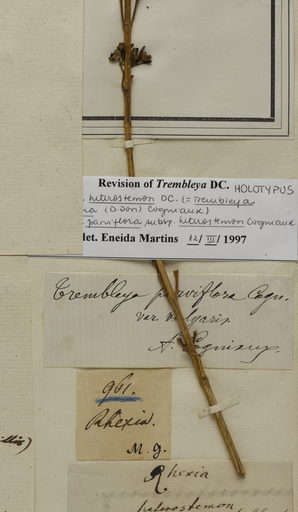 Revision of Trembleya DC. HOLOTYPUS
. heterostemon DC. (= Trembleya
na (D. Don) Cogniaux)
parviflora subsp. heterostemon Cogniaux
det. Eneida Martins 12/III/1997
Trembleya parviflora Cogn.
var. vulgaris
A. Cogniaux
961.
Rhexia.
M. G.
Rhexia
heterostemon